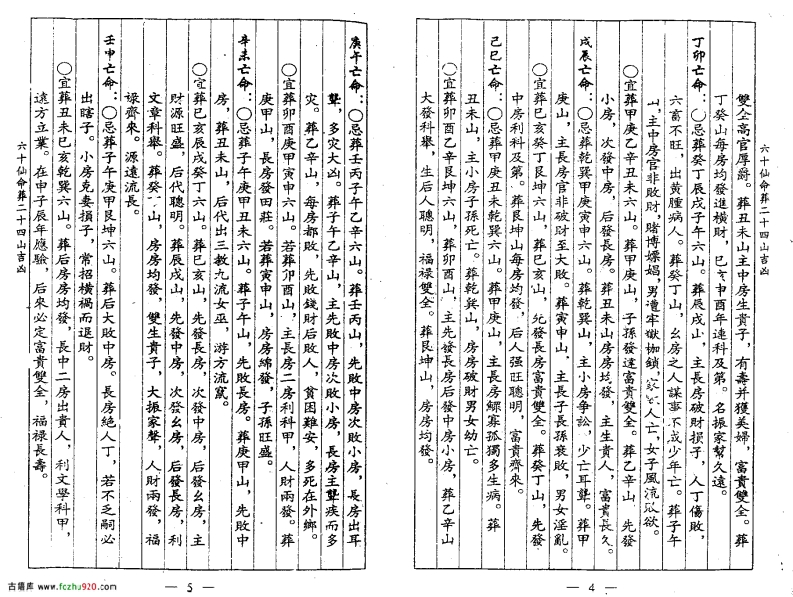 六十仙命葬二十四山吉凶
雙全高官厚爵。葬丑未山主中房生貴子，有壽并獲美婦，富貴雙全。葬
丁癸山每房均發進橫財，巳亥申酉年連科及第。名振家幫久遠。
丁卯亡命：〇忌葬癸丁辰戌子午六山。葬辰戌山，主長房破財損子，人丁傷敗，
六畜不旺，出黃腫病人。葬癸丁山，幺房之人謀事不成少年亡。葬子午
山，主中房官非敗財，賭博嫖娼，男遭牢獄枷鎖，家人亡，女子風流
〇宜葬甲庚乙辛丑未六山。葬甲庚山，子孫發達富貴雙全。葬乙辛山，先發
小房，次發中房，后發長房。葬丑未山房房均發，主生貴人，富貴長久。
戊辰亡命：〇忌葬乾巽甲庚寅申六山。葬乾巽山，主小房爭訟，少亡耳聾。葬甲
庚山，主長房官非破財至大敗。葬寅申山，主長子長孫衰敗，男女淫亂。
〇宜葬巳亥癸丁艮坤六山，葬巳亥山，先發長房富貴雙全。葬癸丁山，先發
中房利科及第。葬艮坤山每房均發，后人强旺聰明，富貴齊來。
己巳亡命：〇忌葬甲庚丑未乾巽六山。葬甲庚山，主長房鰥寡孤獨多生病。葬
丑未山，主小房子孫死亡。葬乾巽山，房房破財男女幼亡。
〇宜葬卯酉乙辛艮坤六山，葬卯酉山，主先發長房后發中房小房，葬乙辛山
大發科舉，生后人聰明，福禄雙全。葬艮坤山，房房均發。
— 4 —
庚午亡命：〇忌葬壬丙子午乙辛六山。葬壬丙山，先敗中房次敗小房，長房出耳
聾，多灾大凶。葬子午乙辛山，主先敗中房次敗小房，長房主聾疾而多
灾。葬乙辛山，每房都敗，先敗錢財后敗人，貧困難安，多死在外鄉。
〇宜葬卯酉庚甲寅申六山。若葬卯酉山，主長房二房利科甲，人財兩發。葬
庚甲山，長房發田莊。若葬寅申山，房房綿發，子孫旺盛。
辛未亡命：〇忌葬子午庚甲丑未六山。葬子午山，先敗長房。葬庚甲山，先敗中
房，葬丑未山，后代出三教九流女巫，游方流窮。
〇宜葬巳亥辰戌癸丁六山。葬巳亥山，先發長房，次發中房，后發幺房，主
財源旺盛，后代聰明。葬辰戌山，先發中房，次發幺房，后發長房，利
文章科舉。葬癸丁山，房房均發，雙生貴子，大振家聲，人財兩發，福
禄齊來。源遠流長。
壬申亡命：〇忌葬子午庚甲艮坤六山。葬后大敗中房。長房絶人丁，若不乏嗣必
出瞎子。小房克妻損子，常招橫禍而退財。
〇宜葬丑未巳亥乾巽六山。葬后房房均發，長中二房出貴人，利文學科甲，
遠方立業。在申子辰年應驗，后來必定富貴雙全，福禄長壽。
六十仙命葬二十四山吉凶
— 5 —
古籍库 www.fczhu920.com